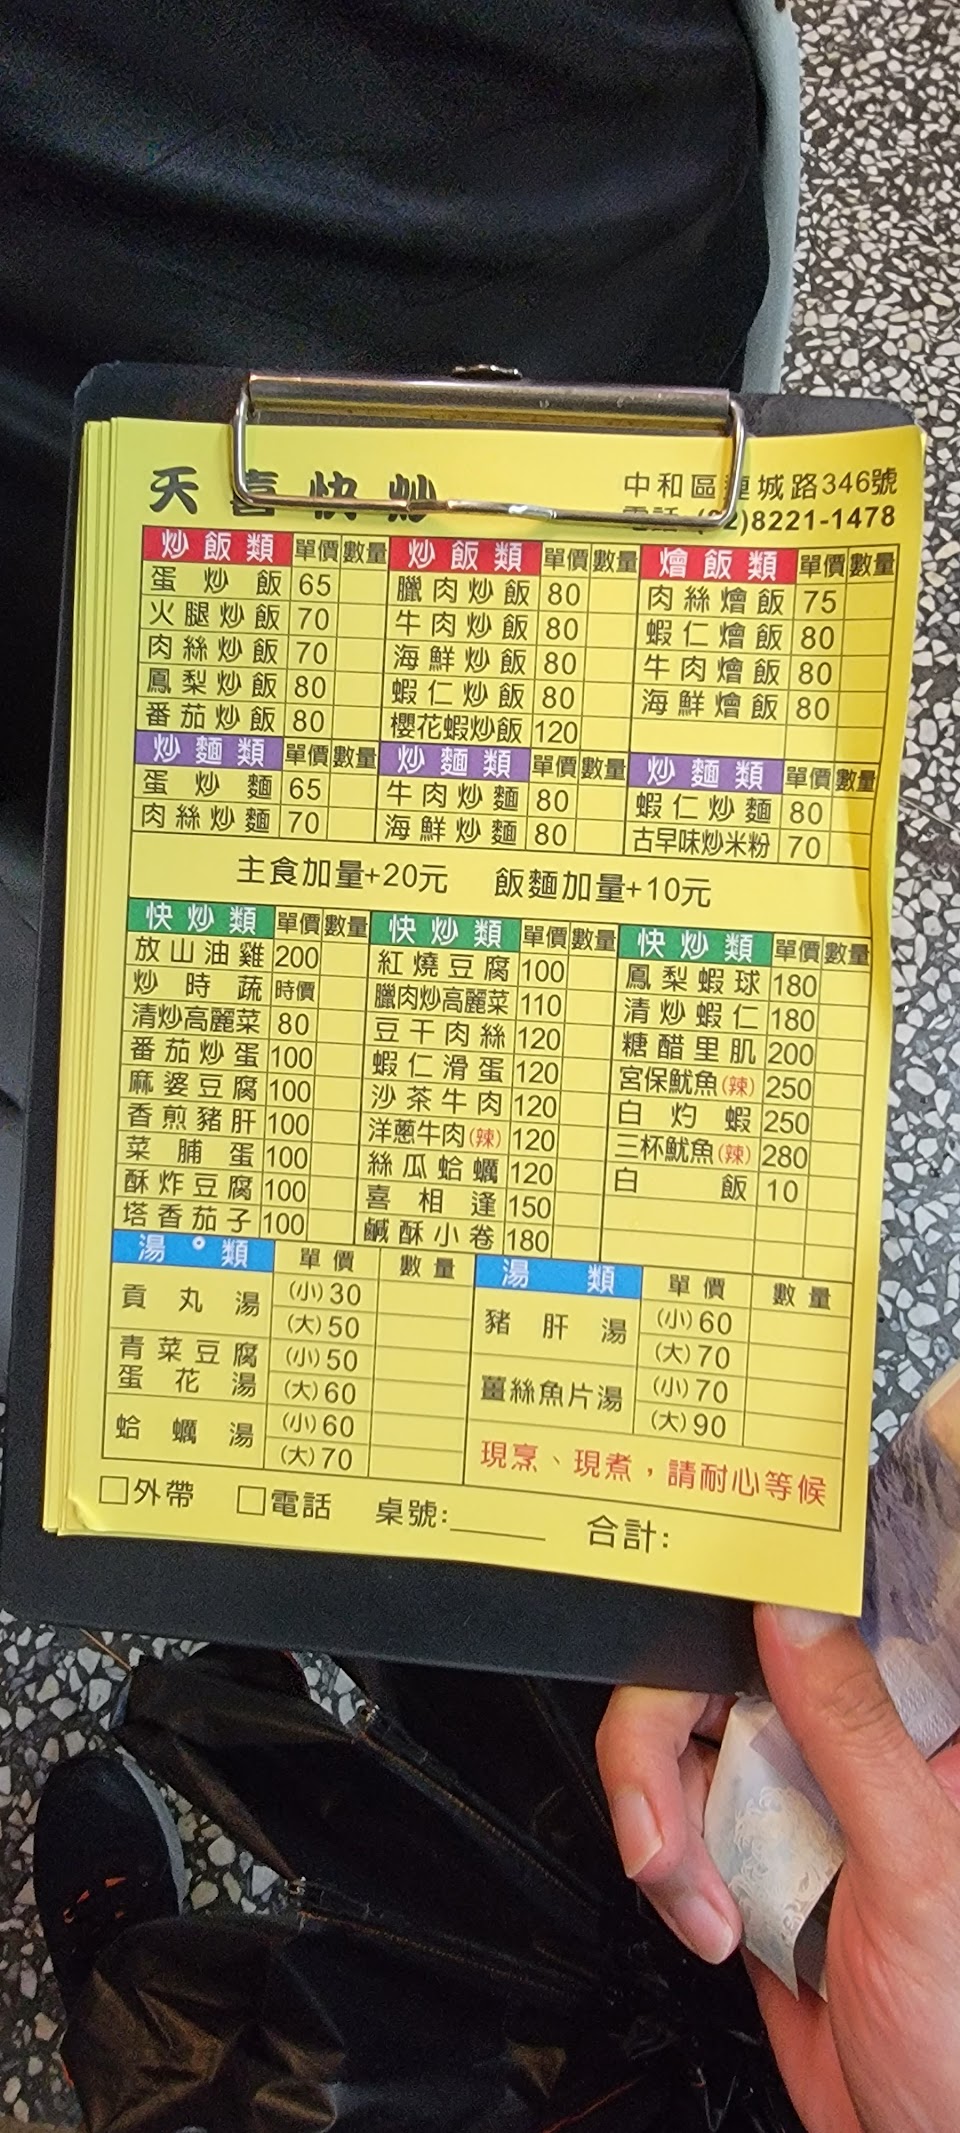 天喜快炒
中和區連城路346號
電話 (02)8221-1478
炒飯類 單價 數量 炒飯類 單價 數量 燴飯類 單價 數量
蛋炒飯 65 臘肉炒飯 80 肉絲燴飯 75
火腿炒飯 70 牛肉炒飯 80 蝦仁燴飯 80
肉絲炒飯 70 海鮮炒飯 80 牛肉燴飯 80
鳳梨炒飯 80 蝦仁炒飯 80 海鮮燴飯 80
番茄炒飯 80 櫻花蝦炒飯 120
炒麵類 單價 數量 炒麵類 單價 數量 炒麵類 單價 數量
蛋炒麵 65 牛肉炒麵 80 蝦仁炒麵 80
肉絲炒麵 70 海鮮炒麵 80 古早味炒米粉 70
主食加量+20元 飯麵加量+10元
快炒類 單價 數量 快炒類 單價 數量 快炒類 單價 數量
放山油雞 200 紅燒豆腐 100 鳳梨蝦球 180
炒時蔬 時價 臘肉炒高麗菜 110 清炒蝦仁 180
清炒高麗菜 80 豆干肉絲 120 糖醋里肌 200
番茄炒蛋 100 蝦仁滑蛋 120 宮保魷魚(辣) 250
麻婆豆腐 100 沙茶牛肉 120 白灼蝦 250
香煎豬肝 100 洋蔥牛肉(辣) 120 三杯魷魚(辣) 280
菜脯蛋 100 絲瓜蛤蠣 120 白飯 10
酥炸豆腐 100 喜相逢 150
塔香茄子 100 鹹酥小卷 180
湯類 單價 數量 湯類 單價 數量
貢丸湯 (小)30 (大)50 豬肝湯 (小)60 (大)70
青菜豆腐蛋花湯 (小)50 (大)60 薑絲魚片湯 (小)70 (大)90
蛤蠣湯 (小)60 (大)70
現烹、現煮，請耐心等候
□外帶 □電話 桌號:______ 合計: